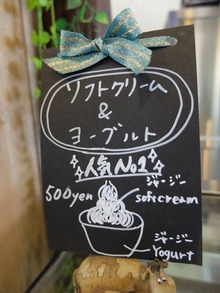 ソフトクリーム
&
ヨーグルト
人気No1
500yen
ジャージー
softcream
ジャージー
Yogurt